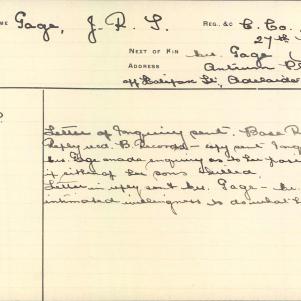 ME Gage, J. R. S. REG. &c C. Co.
27th
NEXT OF KIN Mrs. Gage
ADDRESS Antrim
off Halifax St, Adelaide
Letter of Inquiry sent. Base R
Reply recd. B. Records - copy sent
Mrs. Gage made enquiry as to her
if either of her sons killed.
Letter in reply sent Mrs. Gage -
intimated willingness to do what